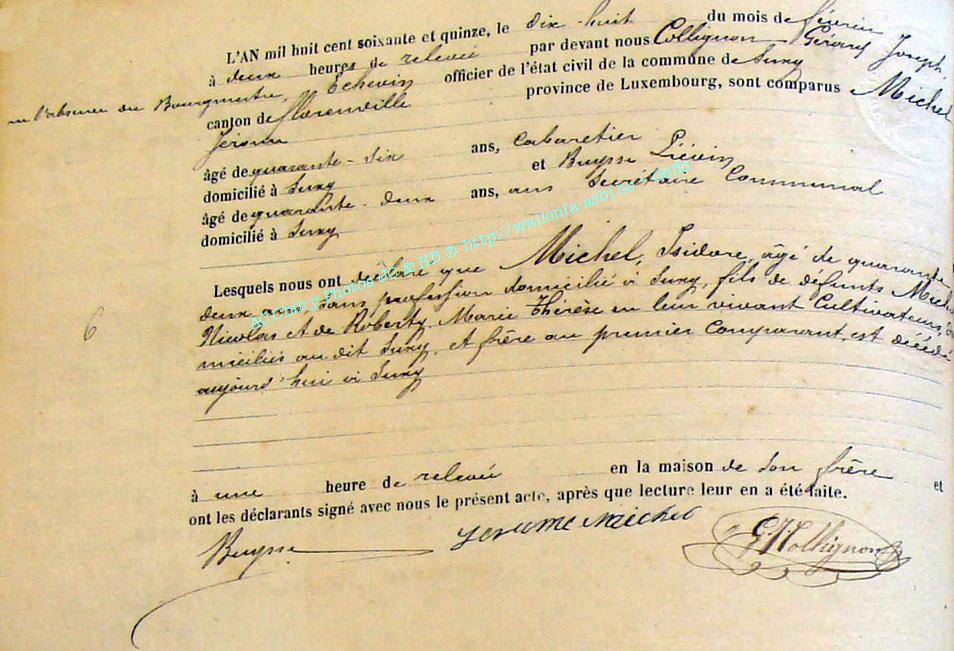 L'AN mil huit cent soixante et quinze, le dix-huit du mois de février
à deux heures de relevée par devant nous Collignon Gérard Joseph,
en l'absence du Bourgmestre, Echevin officier de l'état civil de la commune de Suxy
canton de florenville province de Luxembourg, sont comparus Michel
Jérome
âgé de quarante-six ans, Cabaretier
domicilié à Suxy et Buysse Liévin
âgé de quarante-deux ans, ans Secrétaire Communal
domicilié à Suxy
Lesquels nous ont déclaré que Michel, Isidore, âgé de quarante
deux ans, sans profession domicilié à Suxy, fils de défunts Michel
Nicolas et de Roberty Marie Thérèse en leur vivant Cultivateurs, do
miciliés au dit Suxy, et frère au premier Comparant, est décédé
aujourd'hui à Suxy
6
à une heure de relevée en la maison de son frère et
ont les déclarants signé avec nous le présent acte, après que lecture leur en a été faite.
Buysse Jerome Michel GJCollignon